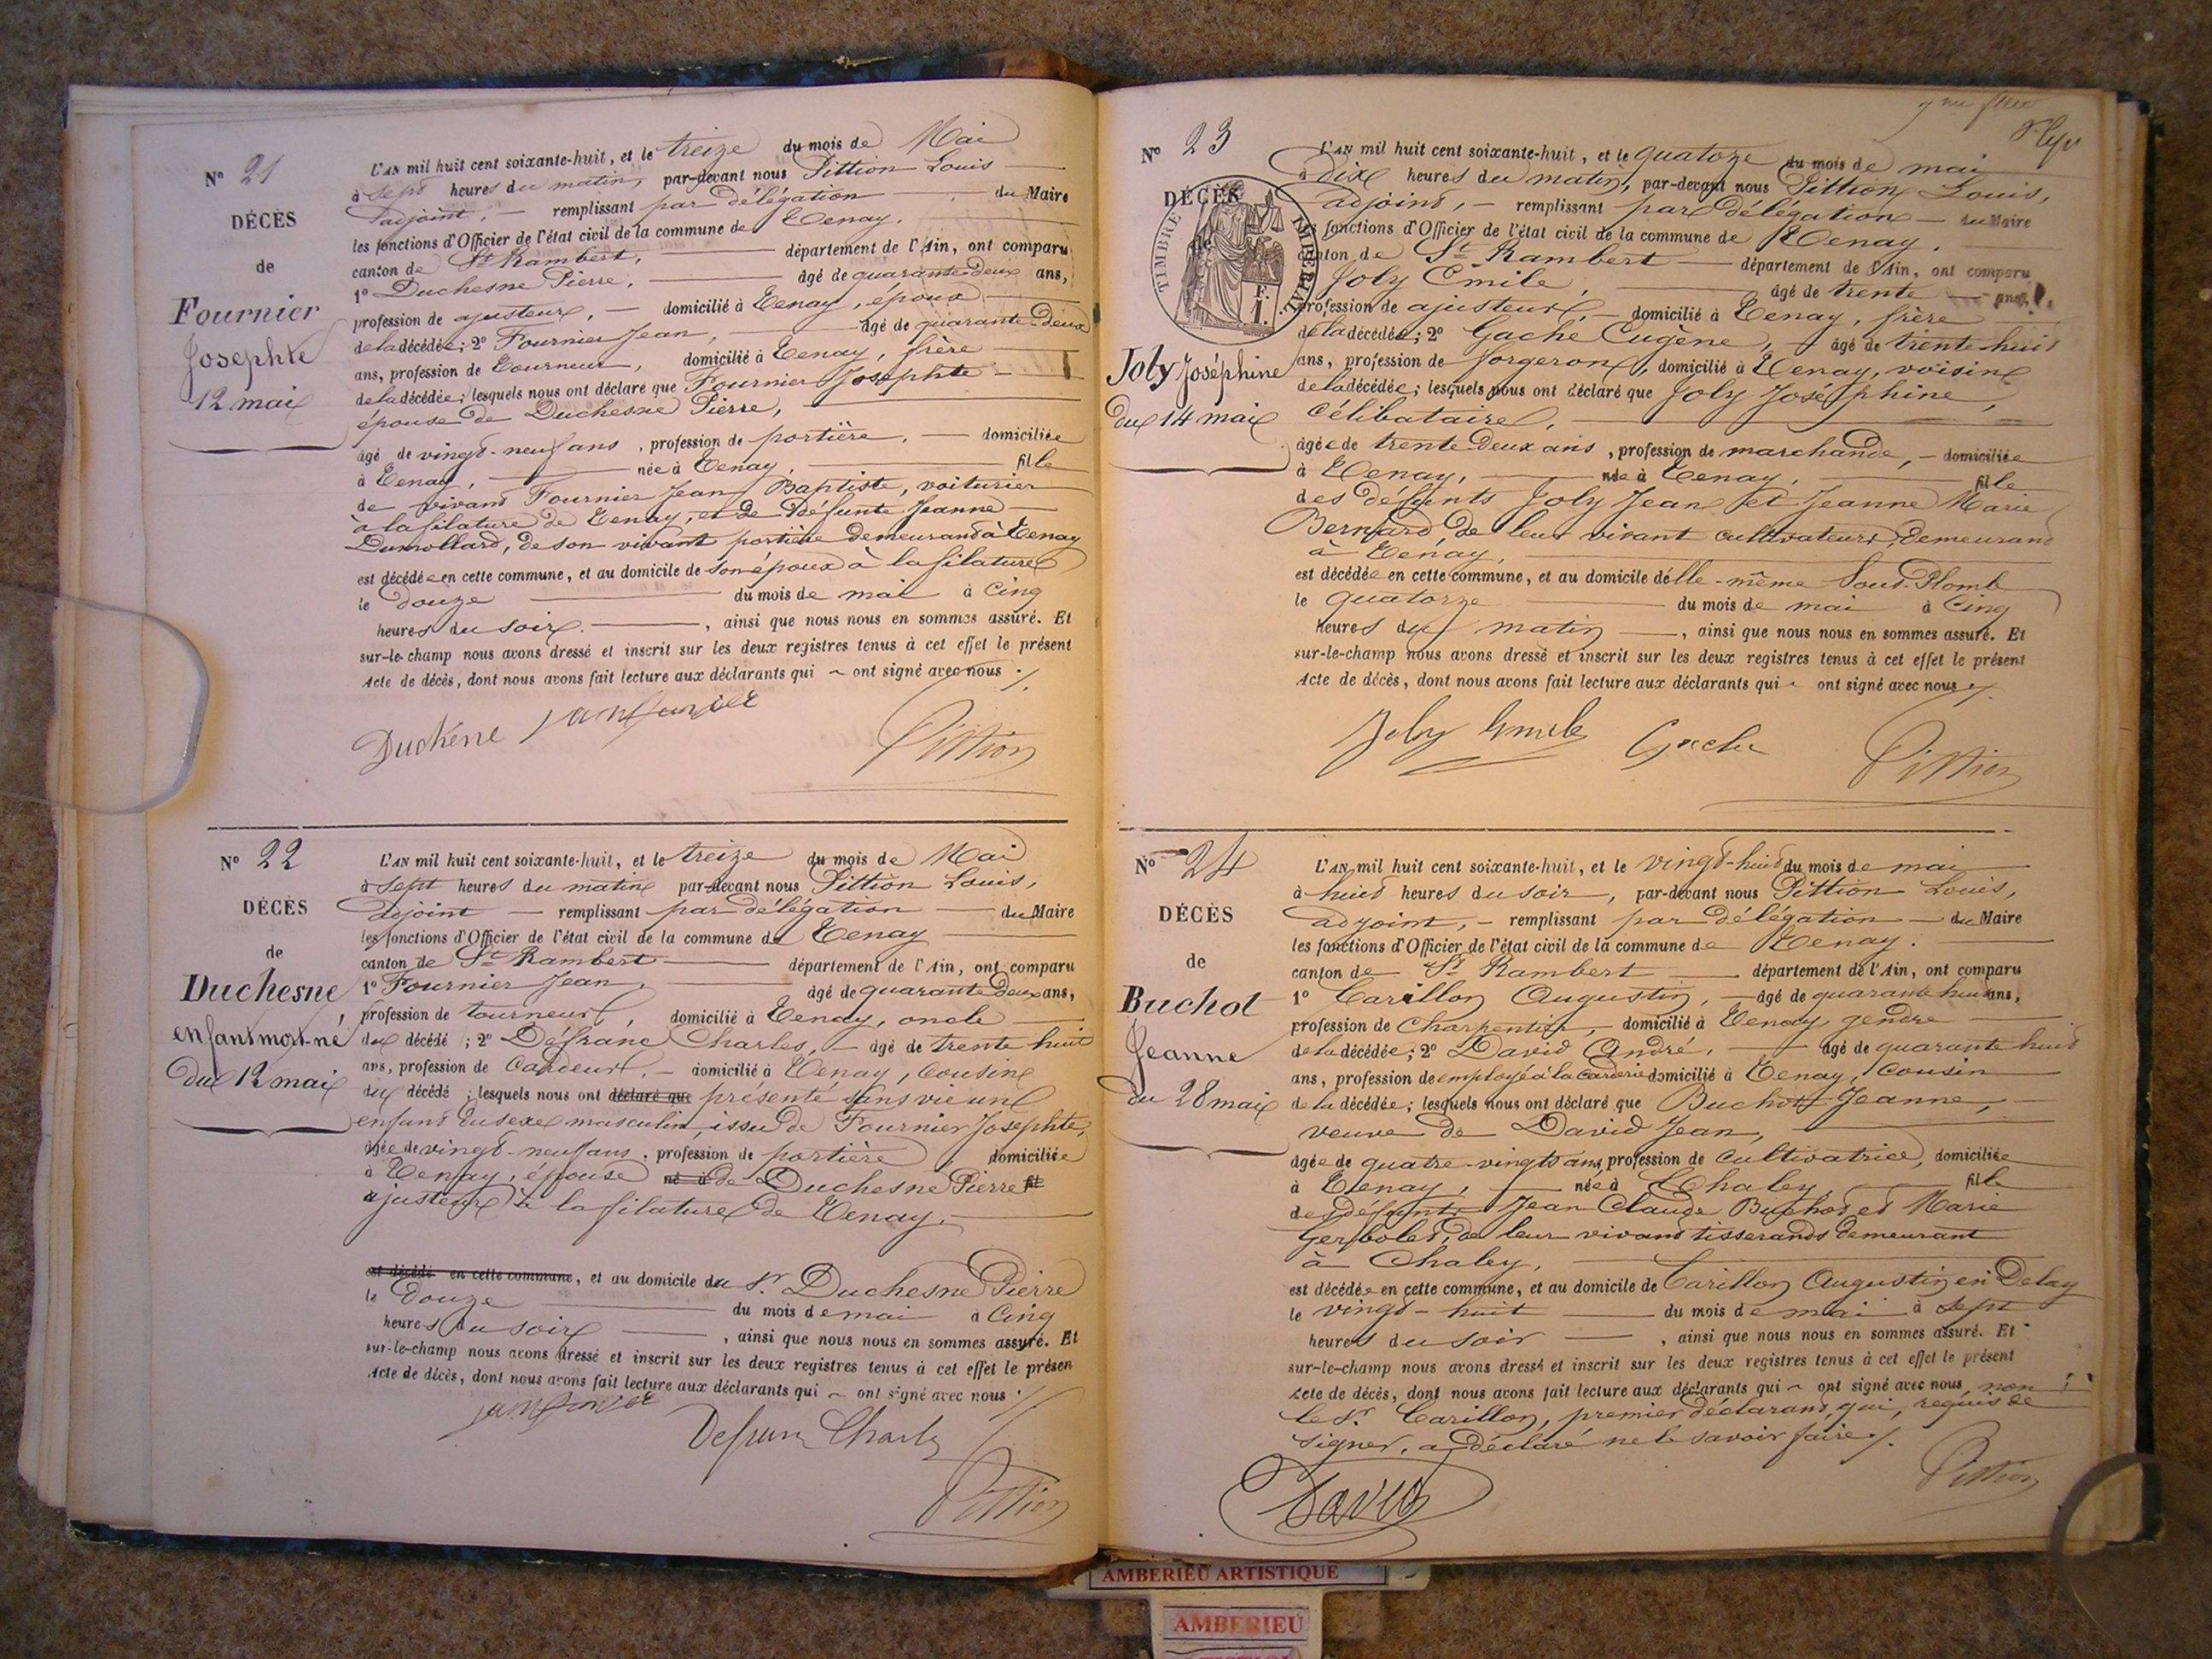 N° 21
DÉCÈS
de
Fournier
Josephte
12 mai
L'AN mil huit cent soixante-huit, et le treize du mois de Mai
à sept heures du matin, par-devant nous Pittion Louis
adjoint, remplissant par délégation du Maire
les fonctions d'Officier de l'état civil de la commune de Tenay,
canton de St Rambert, département de l'Ain, ont comparu
1° Duchesne Pierre, âgé de quarante-deux ans,
profession de ajusteur, domicilié à Tenay, époux
de la décédée; 2° Fournier Jean, âgé de quarante deux
ans, profession de Tourneur, domicilié à Tenay, frère
de la décédée; lesquels nous ont déclaré que Fournier Josephte
épouse de Duchesne Pierre,
âgé de vingt-neuf ans, profession de portière, domiciliée
à Tenay, née à Tenay, fille
de vivant Fournier Jean Baptiste, voiturier
à la filature de Tenay, et de défunte Jeanne
Dumollard, de son vivant portière demeurant à Tenay
est décédée en cette commune, et au domicile de son époux à la filature
le douze du mois de mai à cinq
heures du soir, ainsi que nous nous en sommes assuré. Et
sur-le-champ nous avons dressé et inscrit sur les deux registres tenus à cet effet le présent
Acte de décès, dont nous avons fait lecture aux déclarants qui ont signé avec nous
Duchêne
Pittion
N° 22
DÉCÈS
de
Duchesne,
enfant mort-né
du 12 mai
L'AN mil huit cent soixante-huit, et le treize du mois de Mai
à sept heures du matin par-devant nous Pittion Louis,
adjoint remplissant par délégation du Maire
les fonctions d'Officier de l'état civil de la commune de Tenay
canton de St Rambert département de l'Ain, ont comparu
1° Fournier Jean, âgé de quarante deux ans,
profession de tourneur, domicilié à Tenay, oncle
du décédé; 2° Défranc Charles, âgé de trente huit
ans, profession de Cardeur, domicilié à Tenay, cousin
du décédé; lesquels nous ont déclaré que présenté sans vie un
enfant du sexe masculin, issu de Fournier Josephte,
âgée de vingt-neuf ans, profession de portière domiciliée
à Tenay, épouse né à de Duchesne Pierre fil
ajusteur à la filature de Tenay.
est décédé en cette commune, et au domicile du Sr. Duchesne Pierre
le Douze du mois de mai à Cinq
heures du soir, ainsi que nous nous en sommes assuré. Et
sur-le-champ nous avons dressé et inscrit sur les deux registres tenus à cet effet le présen
Acte de décès, dont nous avons fait lecture aux déclarants qui ont signé avec nous
Pittion
N° 23
DÉCÈS
de
TIMBRE IMPERIAL
F.
1.
Joly Joséphine
du 14 mai
L'AN mil huit cent soixante-huit, et le quatoze du mois de mai
à dix heures du matin, par-devant nous Pittion Louis,
adjoint, remplissant par délégation du Maire
les fonctions d'Officier de l'état civil de la commune de Tenay,
canton de St Rambert département de l'Ain, ont comparu
Joly Emile, âgé de trente ans,
profession de ajusteur, domicilié à Tenay, frère
de la décédée; 2° Gache Eugène, âgé de trente-huit
ans, profession de forgeron, domicilié à Tenay, voisin
de la décédée; lesquels nous ont déclaré que Joly Joséphine,
célibataire,
âgée de trente-deux ans, profession de marchande, domiciliée
à Tenay, née à Tenay, fille
des défunts Joly Jean et Jeanne Marie
Bernard, de leur vivant cultivateurs, demeurant
à Tenay,
est décédée en cette commune, et au domicile d'elle-même Sous-Plomb
le quatorze du mois de mai à cinq
heures du matin, ainsi que nous nous en sommes assuré. Et
sur-le-champ nous avons dressé et inscrit sur les deux registres tenus à cet effet le présent
Acte de décès, dont nous avons fait lecture aux déclarants qui ont signé avec nous
Joly Emile Gache
Pittion
N° 24
DÉCÈS
de
Buchot
Jeanne
du 28 mai
L'AN mil huit cent soixante-huit, et le vingt-huit du mois de mai
à huit heures du soir, par-devant nous Pittion Louis,
adjoint, remplissant par délégation du Maire
les fonctions d'Officier de l'état civil de la commune de Tenay.
canton de St Rambert département de l'Ain, ont comparu
1° Carillon Augustin, âgé de quarante huit ans,
profession de Charpentier, domicilié à Tenay, gendre
de la décédée; 2° David André, âgé de quarante huit
ans, profession de employé à la Carderie domicilié à Tenay, cousin
de la décédée; lesquels nous ont déclaré que Buchot Jeanne,
veuve de David Jean,
âgée de quatre-vingts ans, profession de cultivatrice, domiciliée
à Tenay, née à Chaley fille
des défunts Jean Claude Buchot et Marie
Gerbolet, de leur vivant tisserands demeurant
à Chaley,
est décédée en cette commune, et au domicile de Carillon Augustin en Delay
le vingt-huit du mois de mai à sept
heures du soir, ainsi que nous nous en sommes assuré. Et
sur-le-champ nous avons dressé et inscrit sur les deux registres tenus à cet effet le présent
Acte de décès, dont nous avons fait lecture aux déclarants qui ont signé avec nous, non
le Sr. Carillon, premier déclarant, qui, requis de
signer, a déclaré ne le savoir faire
David
Pittion
AMBERIEU ARTISTIQUE
AMBERIEU